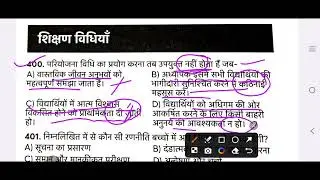 शिक्षण विधियाँ
400. परियोजना विधि का प्रयोग करना तब उपयुक्त नहीं होता हैं जब-
A) वास्तविक जीवन अनुभवों को महत्वपूर्ण समझा जाता है।
B) अध्यापक इसमें सभी विद्यार्थियों की भागीदारी सुनिश्चित करने में कठिनाई महसूस करे।
C) विद्यार्थियों में आत्म विश्वास विकसित होने को प्राथमिकता दी जाती हो।
D) विद्यार्थियों को अधिगम की ओर आकर्षित करने के लिए किसी बाहरी अनुनय की आवश्यकता न हो।
401. निम्नलिखित में से कौन सी रणनीति बच्चों में
A) सूचना का प्रसारण
B)
C)